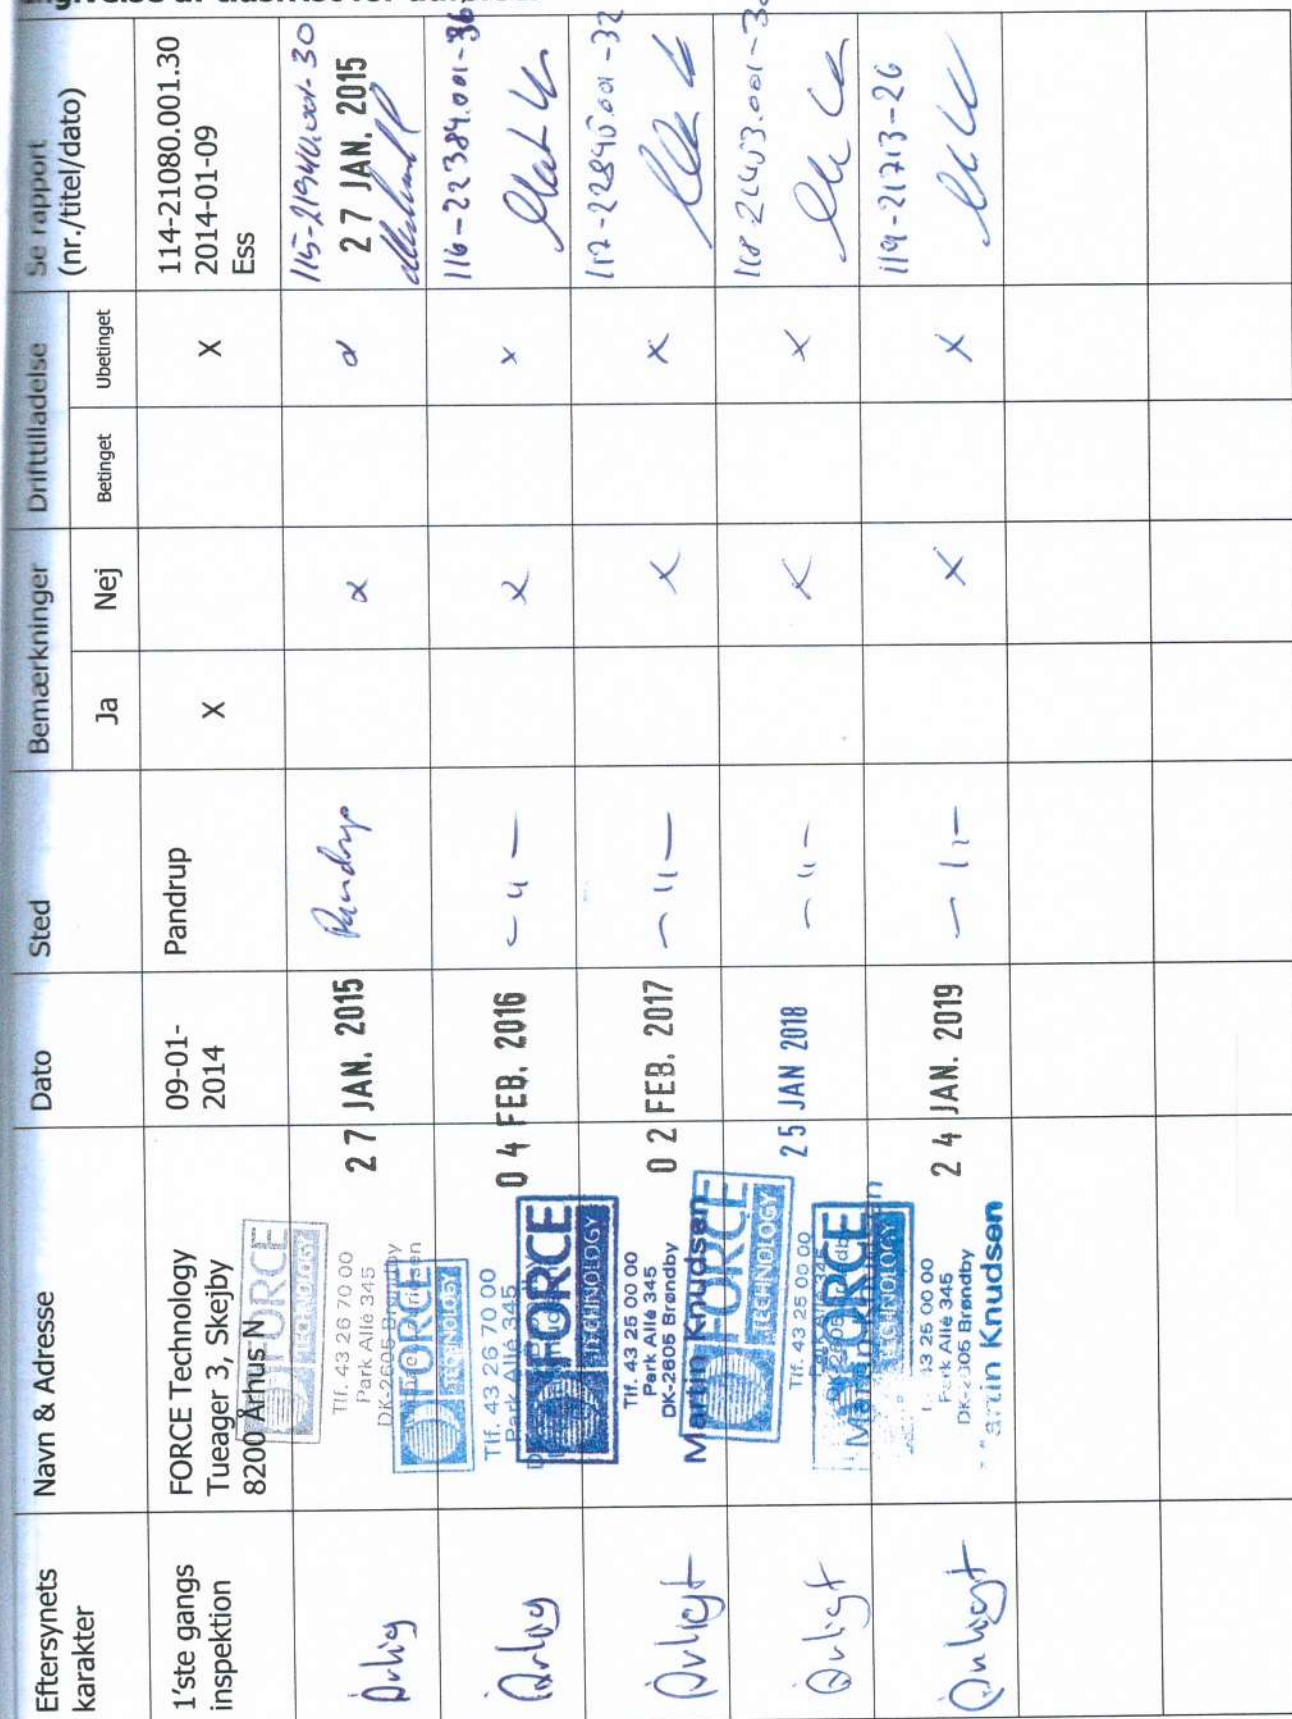 Eftersynets karakter
Navn & Adresse
Dato
Sted
Bemærkninger
Drifttilladelse
Se rapport
(nr./titel/dato)
Ja
Nej
Betinget
Ubetinget
1'ste gangs
inspektion
FORCE Technology
Tueager 3, Skejby
8200 Århus N
09-01-
2014
Pandrup
X
X
114-21080.001.30
2014-01-09
Ess
Årlig
FORCE
TECHNOLOGY
Tlf. 43 26 70 00
Park Allé 345
DK-2605 Brøndby
27 JAN. 2015
Pandrup
x
x
27 JAN. 2015
Årlig
FORCE
TECHNOLOGY
Tlf. 43 26 70 00
Park Allé 345
04 FEB. 2016
- " -
x
x
116-22384.001-36
Årligt
FORCE
TECHNOLOGY
Tlf. 43 25 00 00
Park Allé 345
DK-2605 Brøndby
Martin Knudsen
02 FEB. 2017
- " -
x
x
117-22845.001-32
Årligt
FORCE
TECHNOLOGY
Tlf. 43 25 00 00
25 JAN 2018
- " -
x
x
Årligt
FORCE
TECHNOLOGY
43 25 00 00
Park Allé 345
DK-2605 Brøndby
Martin Knudsen
24 JAN. 2019
- " -
x
x
119-21713-26